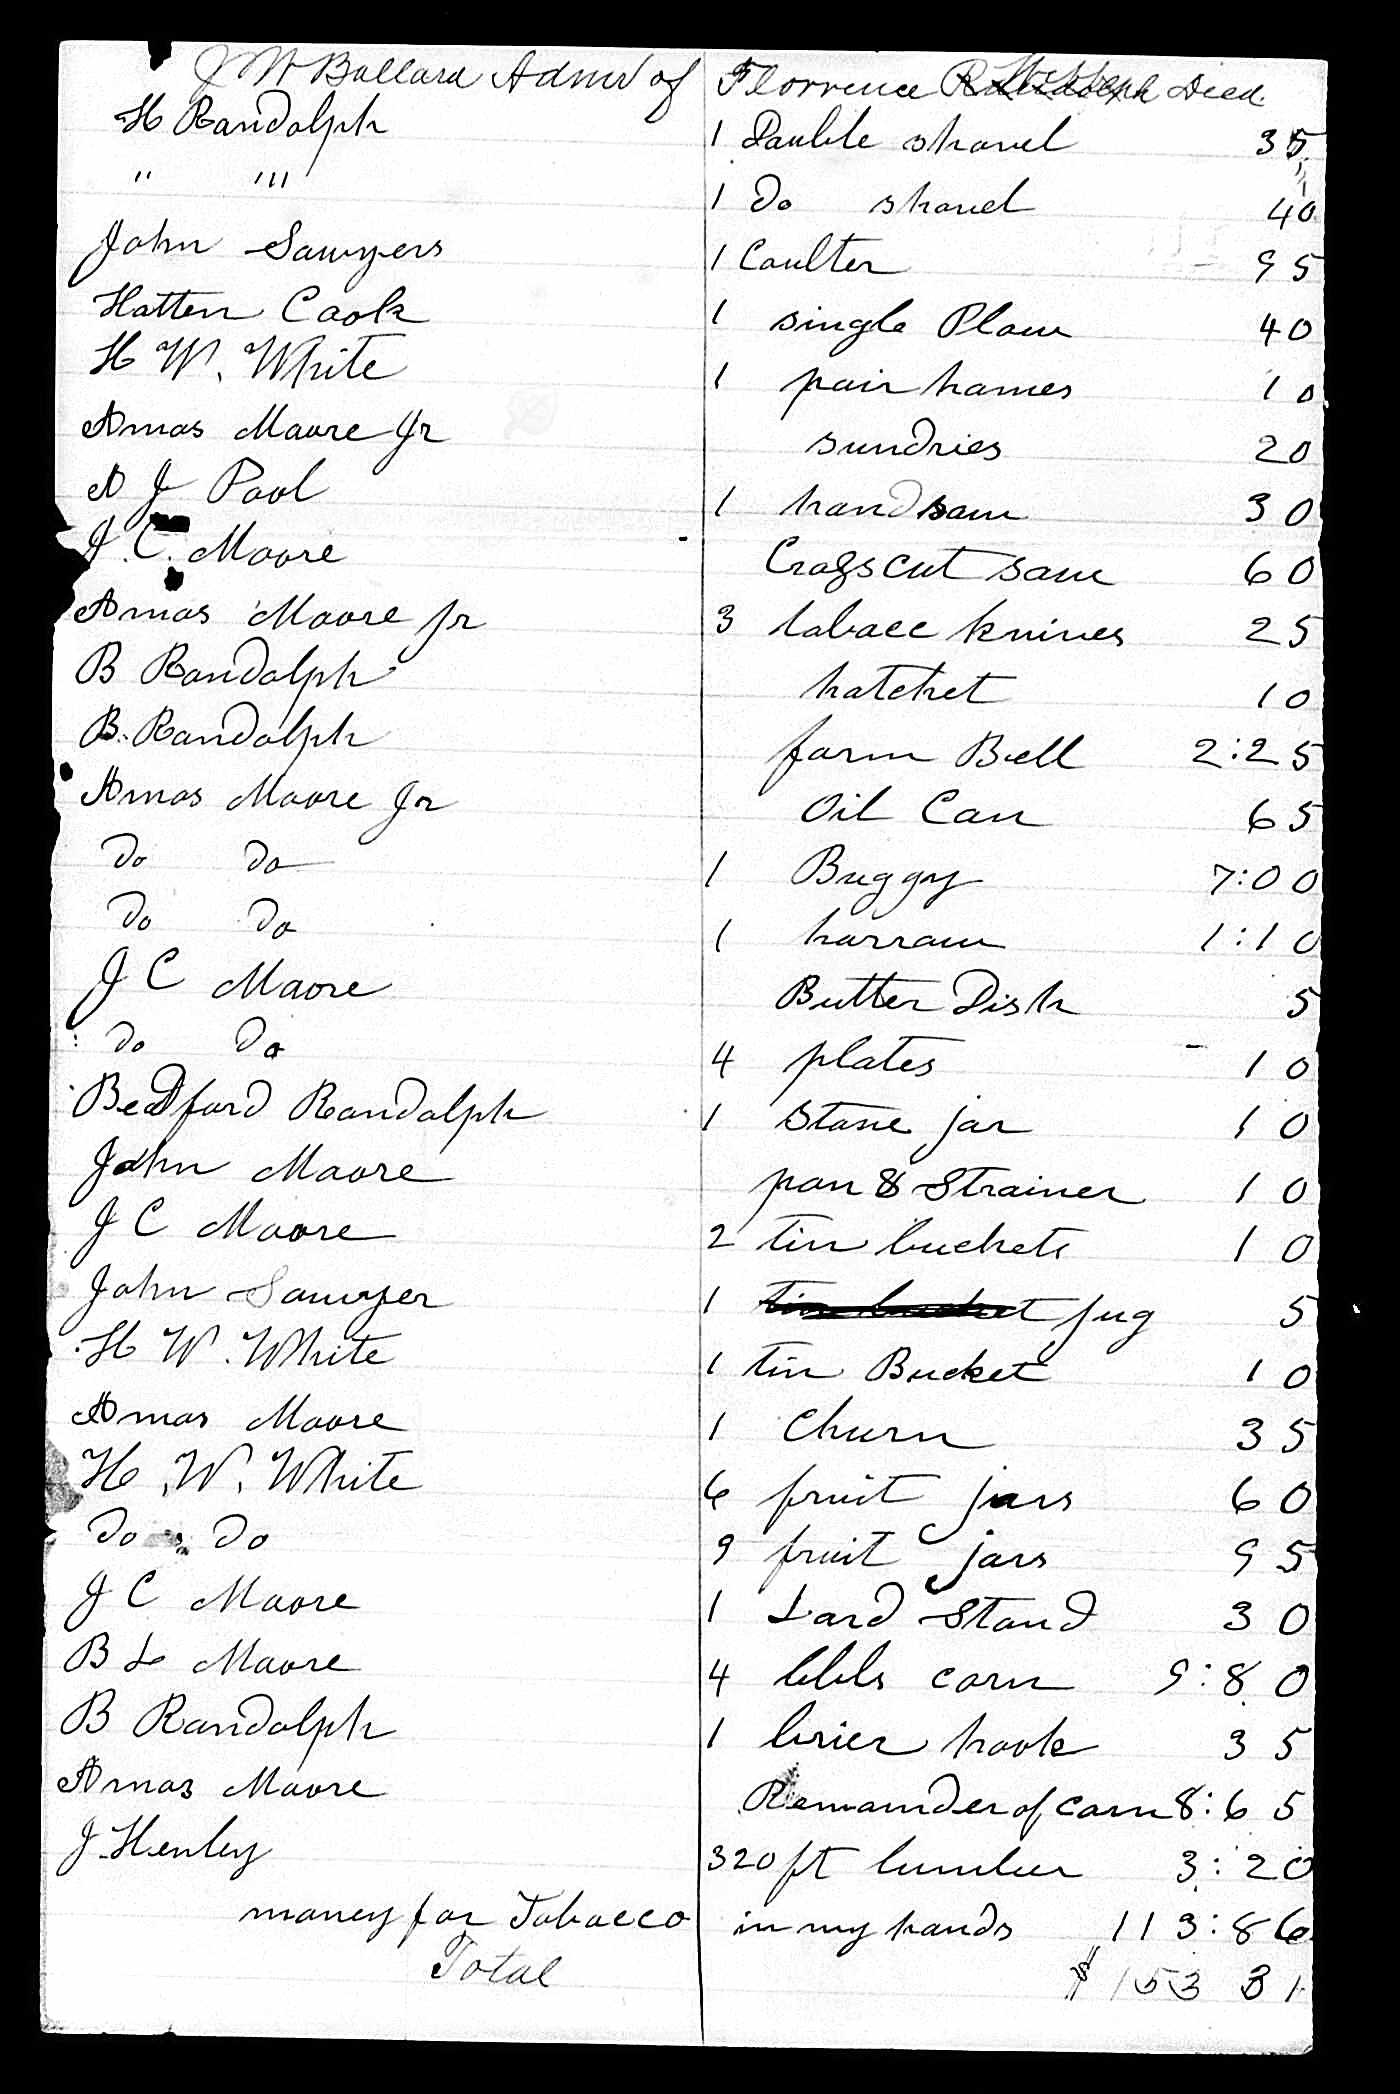 J W Ballard Admr of Florrence Randolph Decd.
H Randolph 1 Double shovel 35
" "' 1 Do shovel 40
John Sawyers 1 Coulter 95
Hatten Cook 1 single Plow 40
H W. White 1 pair hames 10
Amos Moore Jr sundries 20
A J Pool 1 handsaw 30
J C. Moore Crosscut saw 60
Amos Moore Jr 3 tobacc knives 25
B Randolph hatchet 10
B. Randolph farm Bell 2:25
Amos Moore Jr Oil Can 65
Do Do 1 Buggy 7:00
Do Do 1 harrow 1:10
J C Moore Butter Dish 5
Do Do 4 plates 10
Bedford Randolph 1 Stone jar 10
John Moore pan & Strainer 10
J C Moore 2 tin buckets 10
John Sawyer 1 tin bucket jug 5
H W. White 1 tin Bucket 10
Amos Moore 1 Churn 35
H. W. White 6 fruit jars 60
Do Do 9 fruit jars 95
J C Moore 1 Lard Stand 30
B L Moore 4 bbls corn 9:80
B Randolph 1 brier hook 35
Amos Moore Remainder of corn 8:65
J. Henley 320 ft lumber 3:20
money for Tobacco in my hands 113:86
Total $153 31